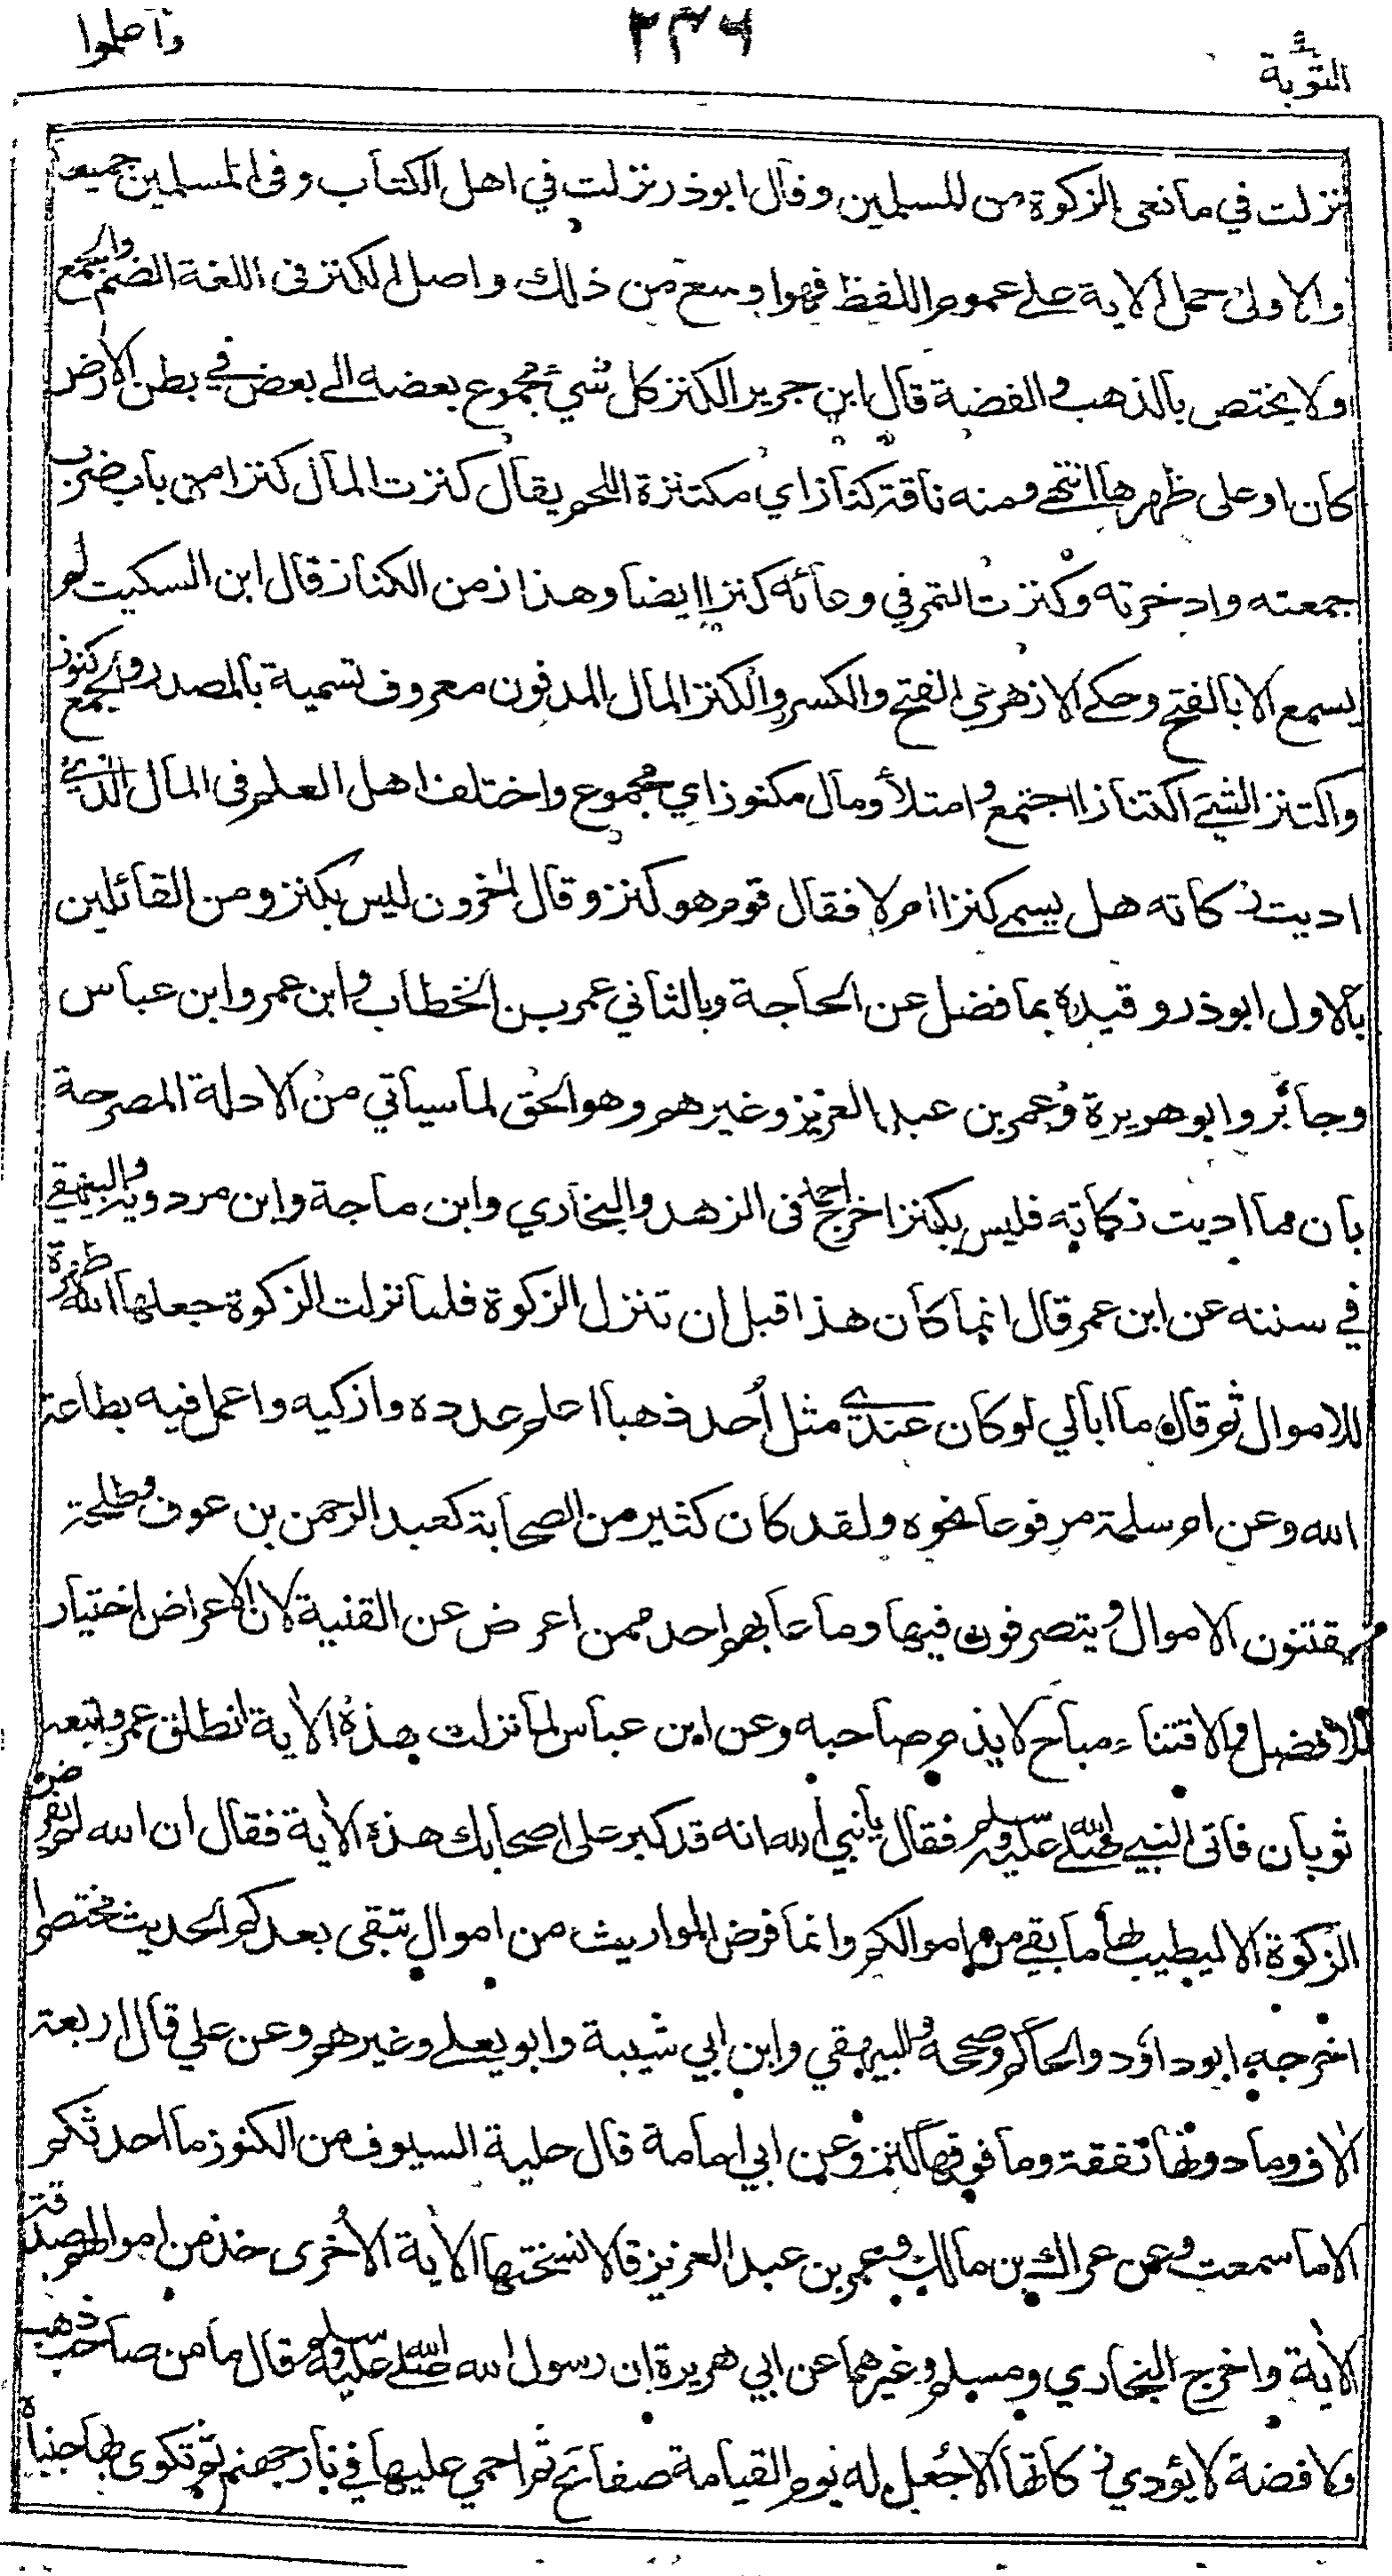 التوبة ٢٣٦ واعلموا
نزلت في مانعى الزكوة من المسلمين وقال ابوذر نزلت في اهل الكتاب وفى المسلمين جميعا
والاولى حمل الاية على عموم اللفظ فهوا وسع من ذلك واصل الكنز فى اللغة الضم والجمع
ولا يختص بالذهب والفضة قال ابن جرير الكنز كل شيء مجموع بعضه الى بعض في بطن الارض
كان او على ظهرها انتهى ومنه ناقة كناز اي مكتنزة اللحم يقال كنزت المال كنزا من باب ضرب
جمعته وادخرته وكنزت التمر في وعائه كنزا ايضا وهذا زمن الكناز قال ابن السكيت لم
يسمع الا بالفتح وحكى الازهري الفتح والكسر والكنز المال المدفون معروف تسمية بالمصدر والجمع كنوز
واكتنز الشيء اكتنازا اجتمع وامتلأ ومال مكنوز اي مجموع واختلف اهل العلم فى المال الذي
اديت زكاته هل يسمى كنزا ام لا فقال قوم هو كنز وقال اخرون ليس بكنز ومن القائلين
بالاول ابوذر وقيده بما فضل عن الحاجة وبالثاني عمر بن الخطاب وابن عمر وابن عباس
وجابر وابو هريرة وعمر بن عبد العزيز وغيرهم وهو الحق لما سيأتي من الادلة المصرحة
بان ما اديت زكاته فليس بكنز اخرج احمد فى الزهد والبخاري وابن ماجة وابن مردويه والبيهقي
في سننه عن ابن عمر قال انما كان هذا قبل ان تنزل الزكوة فلما نزلت الزكوة جعلها الله طهرة
للاموال ثم قال ما ابالي لو كان عندي مثل أُحد ذهبا اعلم عدده وازكيه واعمل فيه بطاعة
الله وعن ام سلمة مرفوعا نحوه ولقد كان كثير من الصحابة كعبد الرحمن بن عوف وطلحة
يقتنون الاموال ويتصرفون فيها وما عابهم احد ممن اعرض عن القنية لان الاعراض اختيار
للافضل والاقتناء مباح لا يذم صاحبه وعن ابن عباس لما نزلت هذه الاية انطلق عمر واتبعه
ثوبان فاتى النبي صلى الله عليه وسلم فقال يا نبي الله انه قد كبر على اصحابك هذه الاية فقال ان الله لم يفرض
الزكوة الا ليطيب بها ما بقي من اموالكم وانما فرض المواريث من اموال تبقى بعدكم الحديث مختصرا
اخرجه ابوداؤد والحاكم وصححه والبيهقي وابن ابي شيبة وابو يعلى وغيرهم وعن علي قال اربعة
الاف وما دونها نفقة وما فوقها كنز وعن ابي امامة قال حلية السيوف من الكنوز ما احدثكم
الا ما سمعت وعن عراك بن مالك وعمر بن عبد العزيز قالا نسختها الاية الاُخرى خذ من اموالهم صدقة
الاية واخرج البخاري ومسلم وغيرهما عن ابي هريرة ان رسول الله صلى الله عليه وسلم قال ما من صاحب ذهب
ولا فضة لا يؤدي زكاتها الا جُعل له يوم القيامة صفائح ثم احمي عليها في نار جهنم ثم تكوى بها جنباه